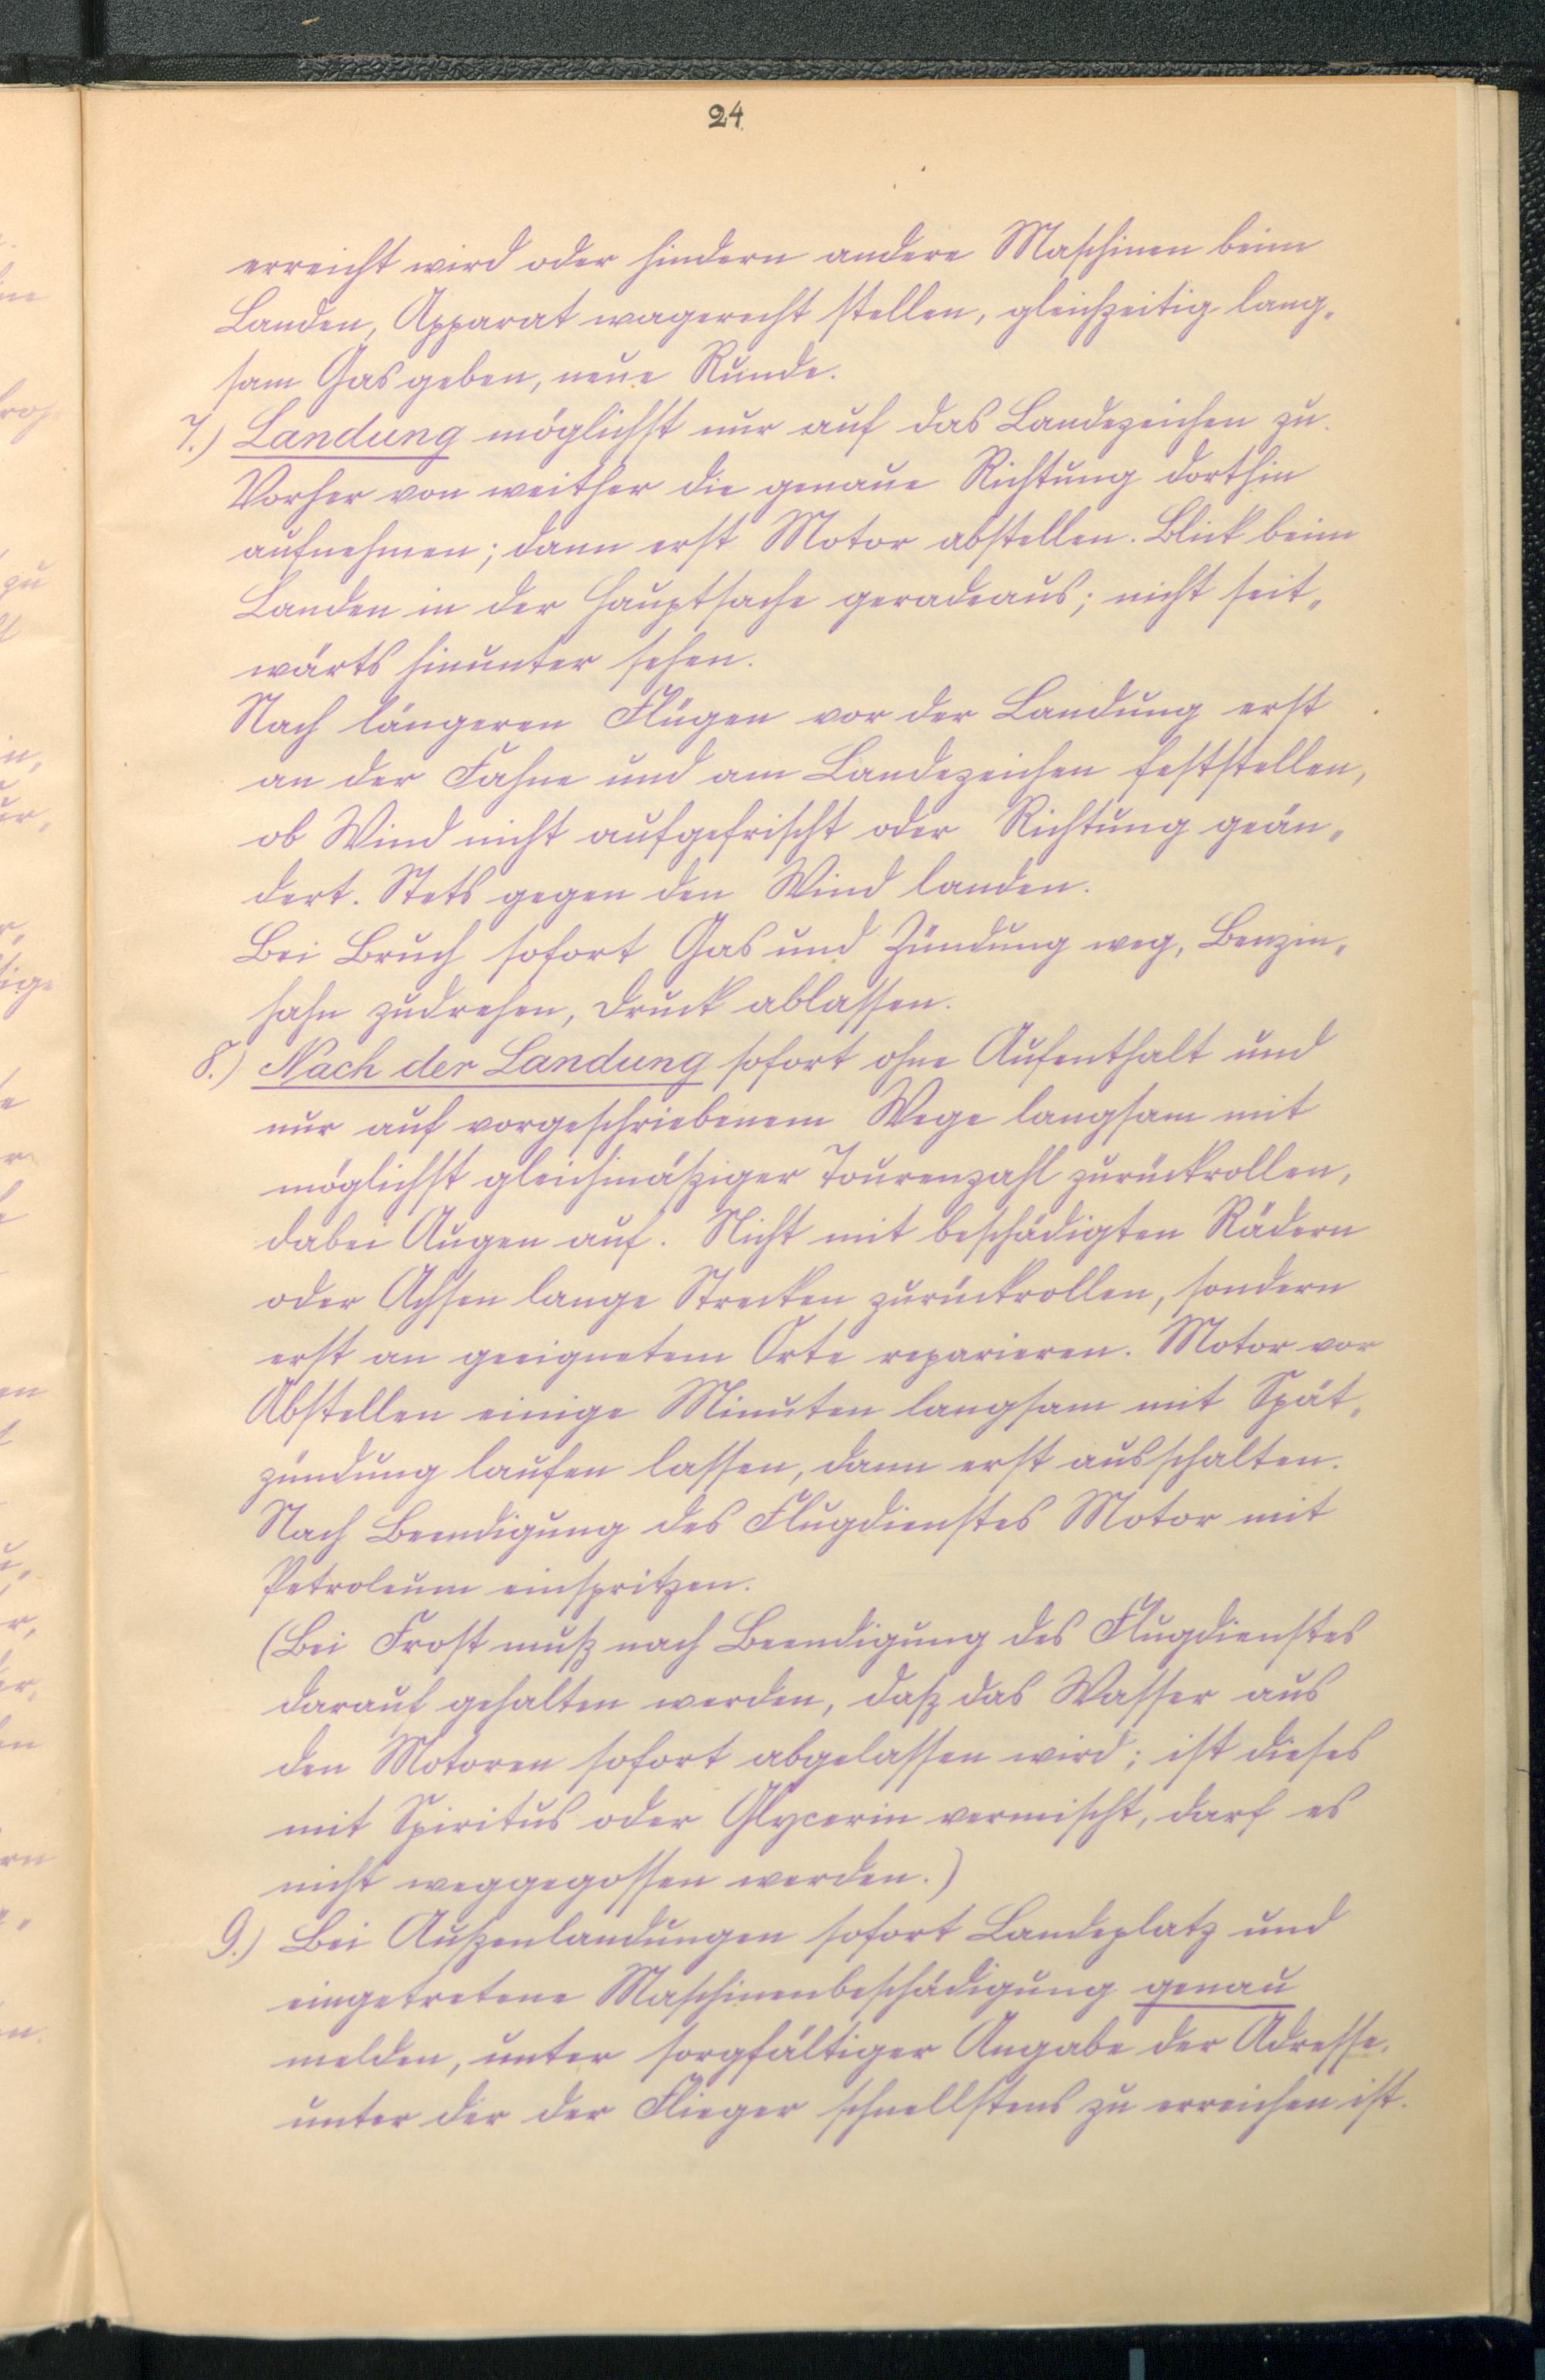 24
erreicht wird oder hindern andere Maschinen beim
Landen, Apparat wagerecht stellen, gleichzeitig lang„
sam Gas geben, neue Runde.
7.) Landung möglichst nur auf das Landezeichen zu.
Vorher von weither die genaue Richtung dorthin
aufnehmen; dann erst Motor abstellen. Blick beim
Landen in der Hauptsache geradeaus; nicht seit„
wärts hinunter sehen.
Nach längeren Flügen vor der Landung erst
an der Fahne und am Landezeichen feststellen,
ob Wind nicht aufgefrischt oder Richtung geän„
dert. Stets gegen den Wind landen.
Bei Bruch sofort Gas und Zündung weg, Benzin„
hahn zudrehen, Druck ablassen.
8.) Nach der Landung sofort ohne Aufenthalt und
nur auf vorgeschriebenem Wege langsam mit
möglichst gleichmäßiger Tourenzahl zurückrollen,
dabei Augen auf. Nicht mit beschädigten Rädern
oder Achsen lange Strecken zurückrollen, sondern
erst an geeignetem Orte reparieren. Motor vor
Abstellen einige Minuten langsam mit Spät„
zündung laufen lassen, dann erst ausschalten.
Nach Beendigung des Flugdienstes Motor mit
Petroleum einspritzen.
(Bei Frost muß nach Beendigung des Flugdienstes
darauf gehalten werden, daß das Wasser aus
den Motoren sofort abgelassen wird; ist dieses
mit Spiritus oder Glycerin vermischt, darf es
nicht weggegossen werden.)
9.) Bei Außenlandungen sofort Landeplatz und
eingetretene Maschinenbeschädigung genau
melden, unter sorgfältiger Angabe der Adresse,
unter der der Flieger schnellstens zu erreichen ist.